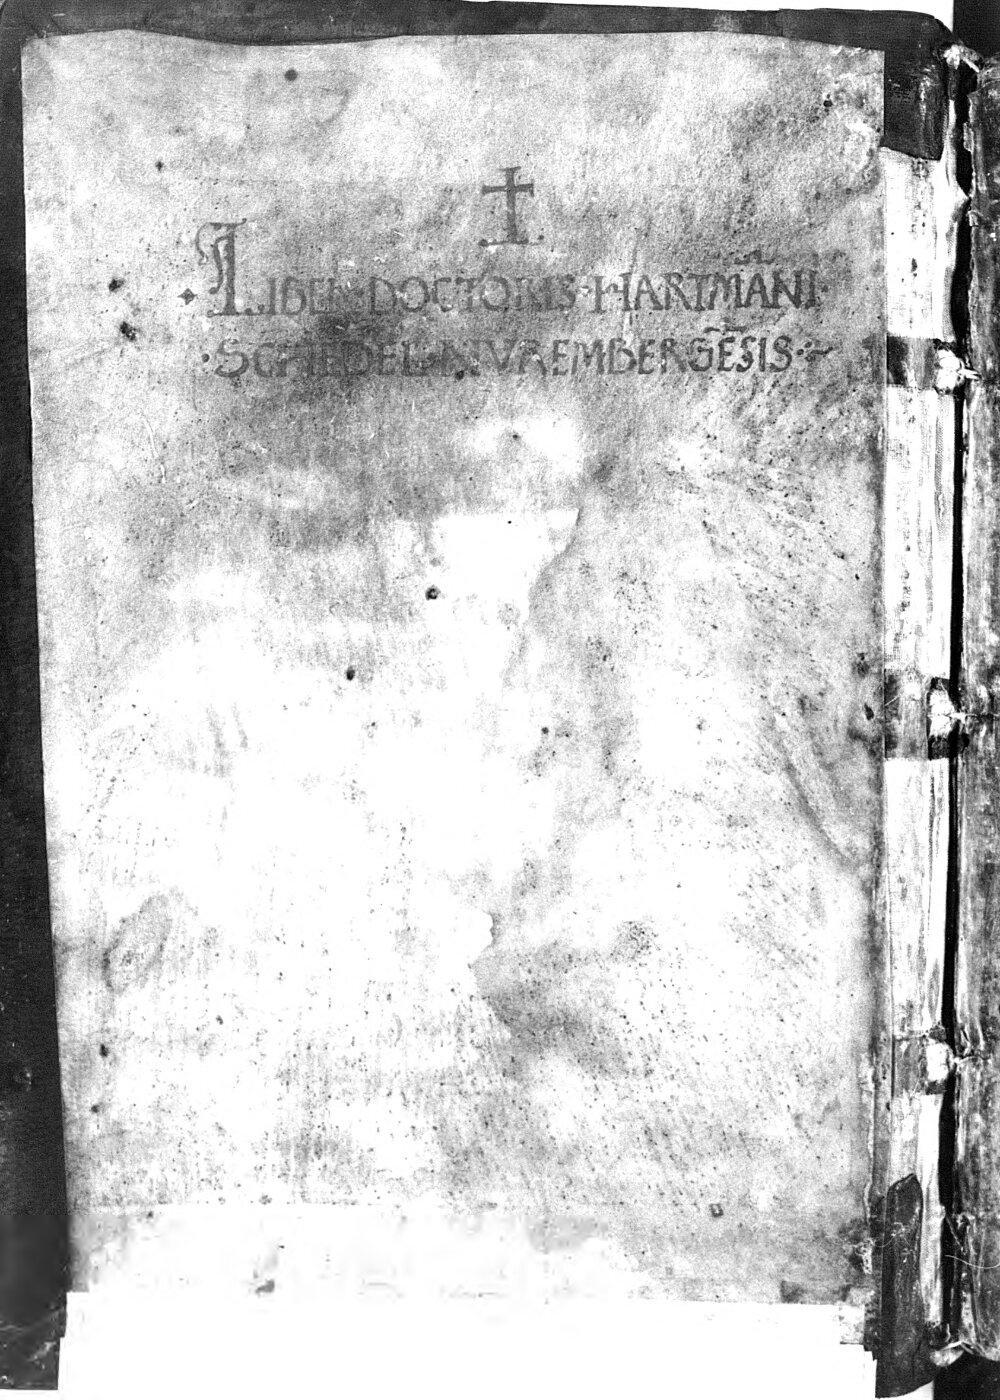 · LIBER · DOCTORIS · HARTMĀNI ·
· SCHEDEL · NVREMBERGĒSIS ·